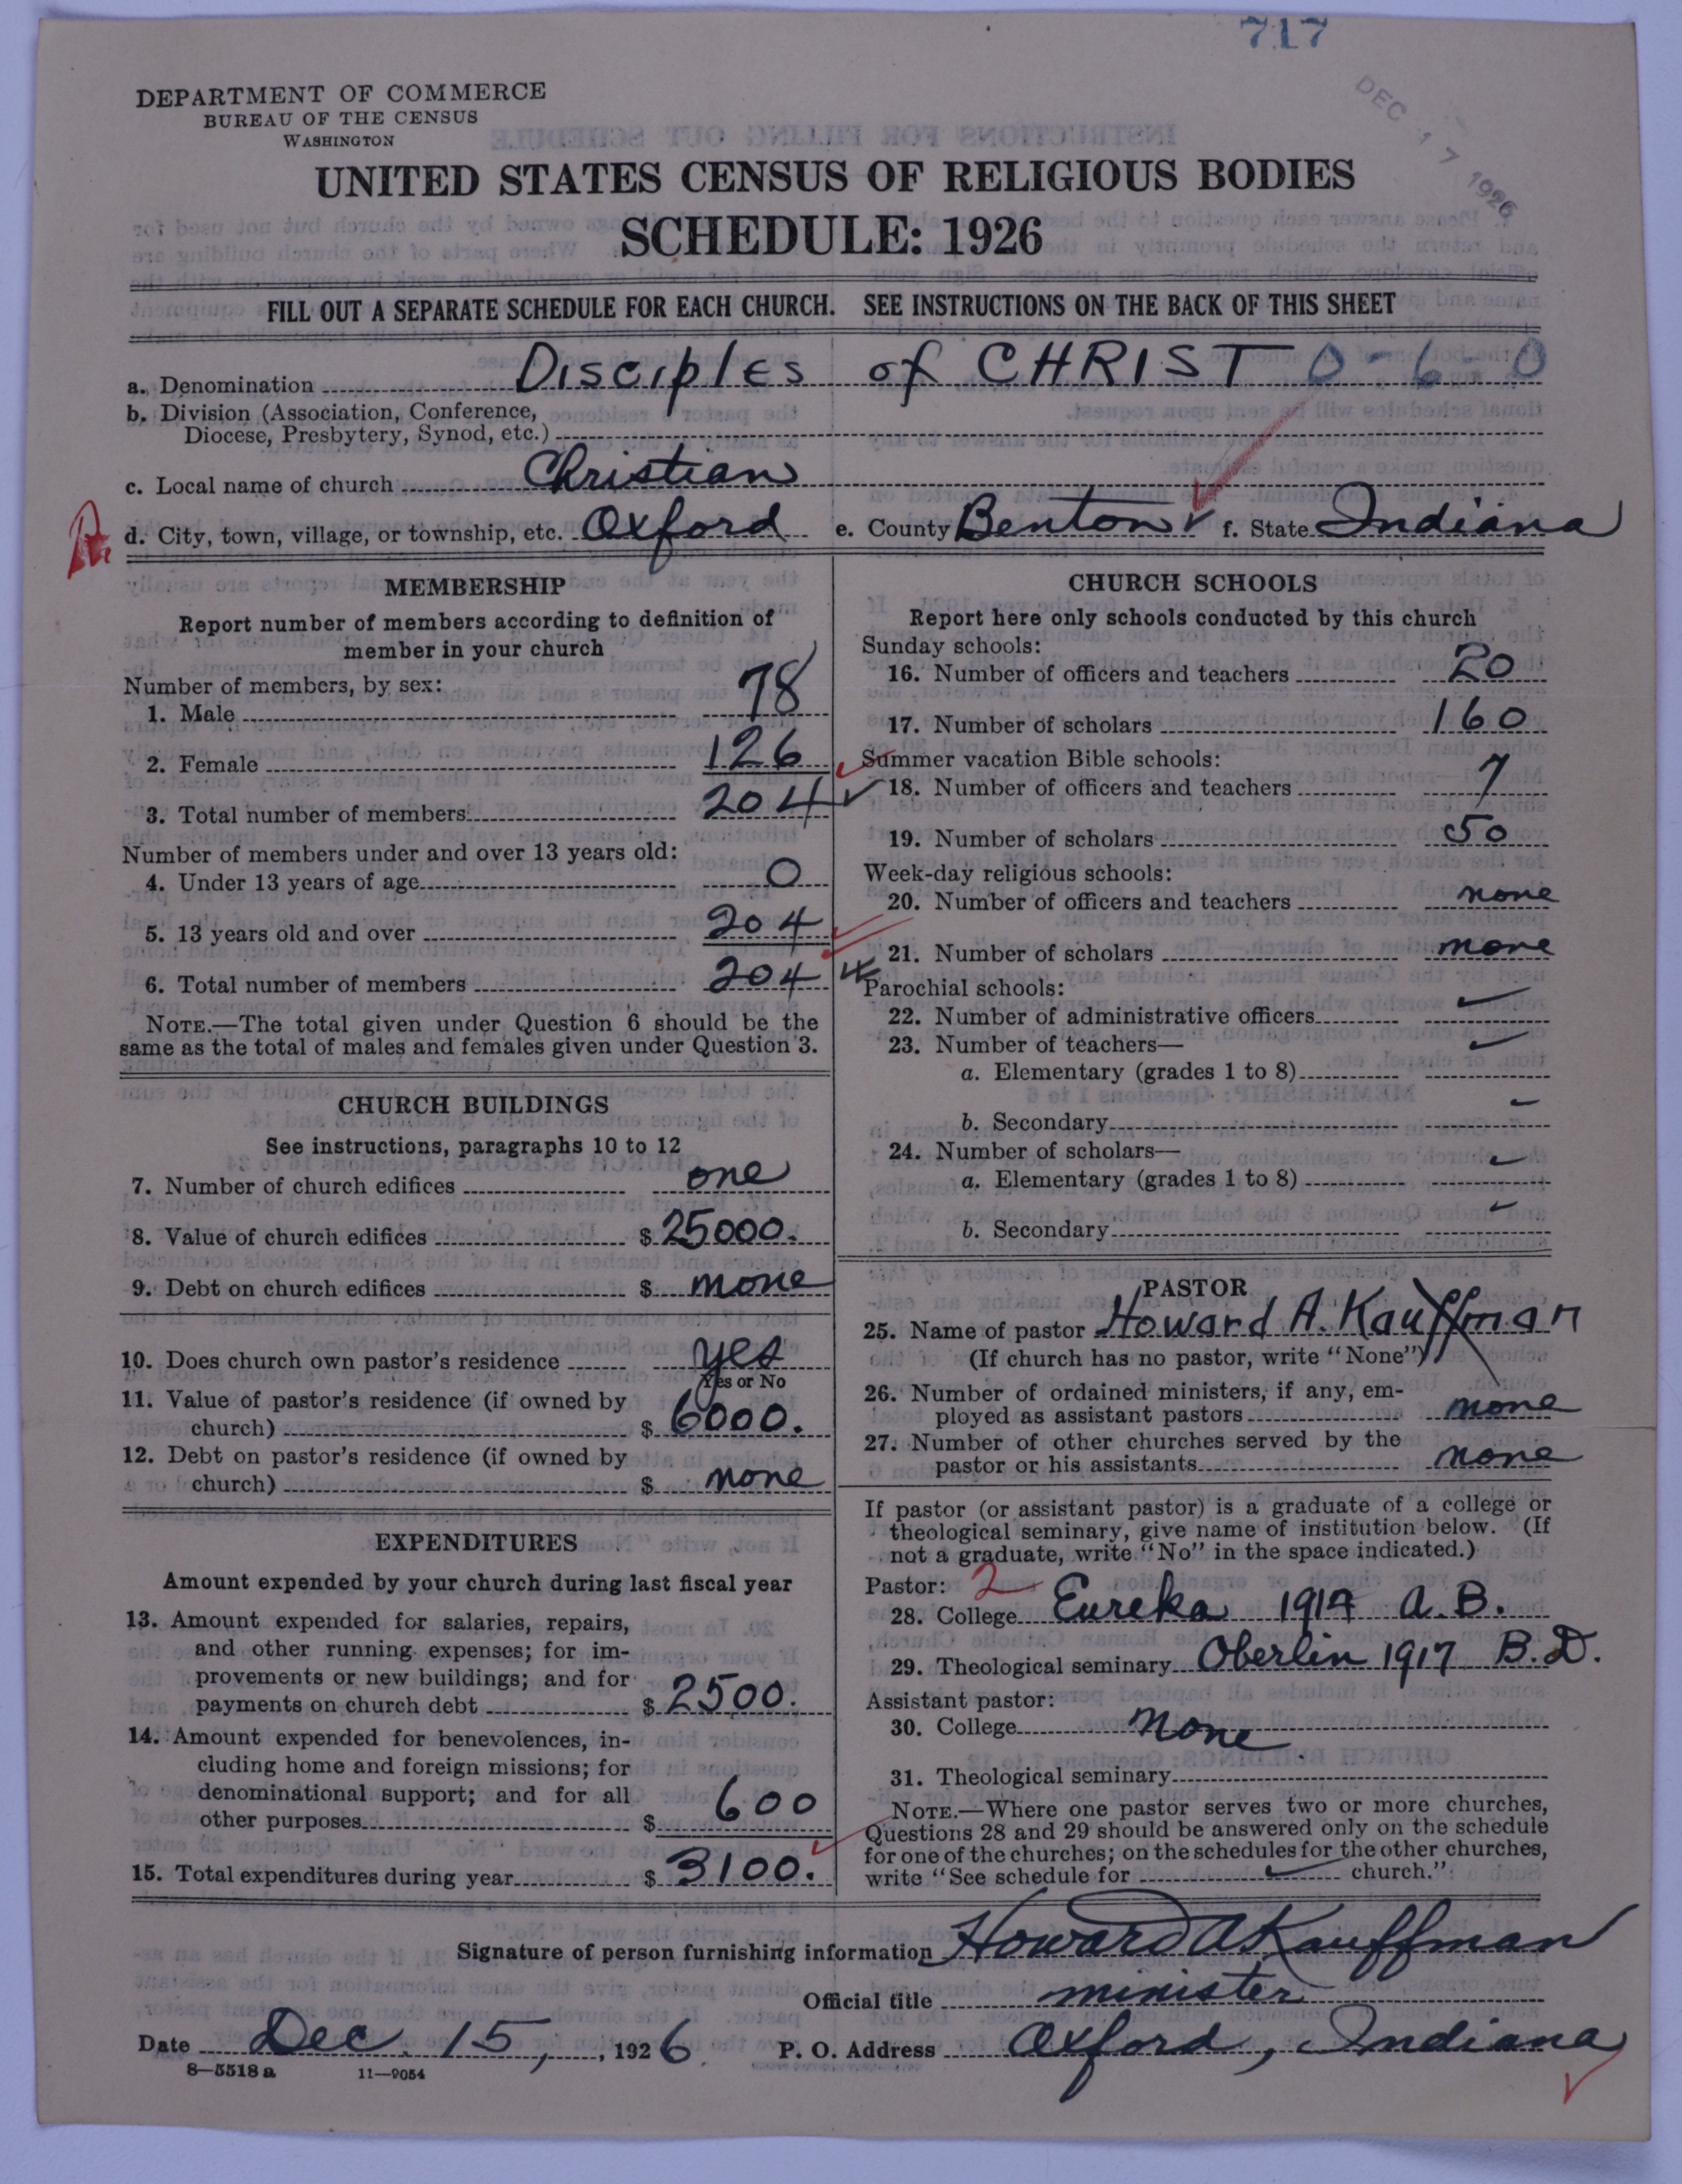 717
DEC 17 1926
DEPARTMENT OF COMMERCE
BUREAU OF THE CENSUS
WASHINGTON
UNITED STATES CENSUS OF RELIGIOUS BODIES
SCHEDULE: 1926
FILL OUT A SEPARATE SCHEDULE FOR EACH CHURCH. SEE INSTRUCTIONS ON THE BACK OF THIS SHEET
a. Denomination Disciples of CHRIST 0-6-0
b. Division (Association, Conference,
Diocese, Presbytery, Synod, etc.)
c. Local name of church Christian
d. City, town, village, or township, etc. Oxford e. County Benton f. State Indiana
MEMBERSHIP
Report number of members according to definition of
member in your church
Number of members, by sex:
1. Male 78
2. Female 126
3. Total number of members 204
Number of members under and over 13 years old:
4. Under 13 years of age 0
5. 13 years old and over 204
6. Total number of members 204
NOTE.—The total given under Question 6 should be the
same as the total of males and females given under Question 3.
CHURCH BUILDINGS
See instructions, paragraphs 10 to 12
7. Number of church edifices one
8. Value of church edifices $ 25000.
9. Debt on church edifices $ none
10. Does church own pastor's residence yes
Yes or No
11. Value of pastor's residence (if owned by
church) $ 6000.
12. Debt on pastor's residence (if owned by
church) $ none
EXPENDITURES
Amount expended by your church during last fiscal year
13. Amount expended for salaries, repairs,
and other running expenses; for im-
provements or new buildings; and for
payments on church debt $ 2500.
14. Amount expended for benevolences, in-
cluding home and foreign missions; for
denominational support; and for all
other purposes $ 600
15. Total expenditures during year $ 3100.
CHURCH SCHOOLS
Report here only schools conducted by this church
Sunday schools:
16. Number of officers and teachers 20
17. Number of scholars 160
Summer vacation Bible schools:
18. Number of officers and teachers 7
19. Number of scholars 50
Week-day religious schools:
20. Number of officers and teachers none
21. Number of scholars none
Parochial schools:
22. Number of administrative officers
23. Number of teachers—
a. Elementary (grades 1 to 8)
b. Secondary
24. Number of scholars—
a. Elementary (grades 1 to 8)
b. Secondary
PASTOR
25. Name of pastor Howard A. Kauffman
(If church has no pastor, write "None")
26. Number of ordained ministers, if any, em-
ployed as assistant pastors none
27. Number of other churches served by the
pastor or his assistants none
If pastor (or assistant pastor) is a graduate of a college or
theological seminary, give name of institution below. (If
not a graduate, write "No" in the space indicated.)
Pastor: 2
28. College Eureka 1914 A.B.
29. Theological seminary Oberlin 1917 B.D.
Assistant pastor:
30. College none
31. Theological seminary
NOTE.—Where one pastor serves two or more churches,
Questions 28 and 29 should be answered only on the schedule
for one of the churches; on the schedules for the other churches,
write "See schedule for church."
Signature of person furnishing information Howard A Kauffman
Official title minister
Date Dec. 15, 1926 P. O. Address Oxford, Indiana
8—5518 a 11—9054